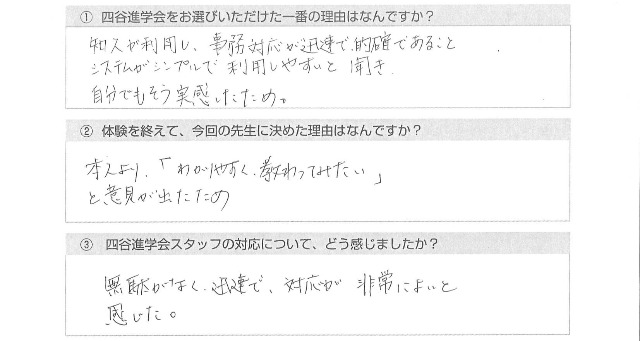 ① 四谷進学会をお選びいただけた一番の理由はなんですか？
知人が利用し、事務対応が迅速で的確であること
システムがシンプルで利用しやすいと聞き
自分でもそう実感したため。
② 体験を終えて、今回の先生に決めた理由はなんですか？
本人より、「わかりやすく、教わってみたい」
と意見が出たため
③ 四谷進学会スタッフの対応について、どう感じましたか？
無駄がなく、迅速で、対応が非常によいと
感じた。